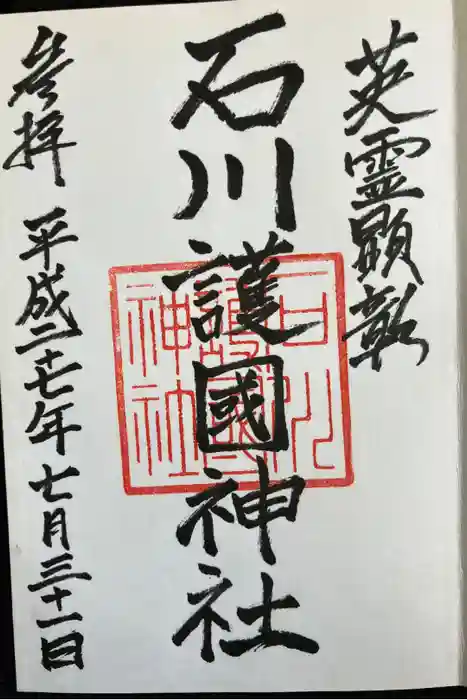 英霊顕彰
石川護國神社
石川護國神社
参拝 平成二十七年七月三十一日